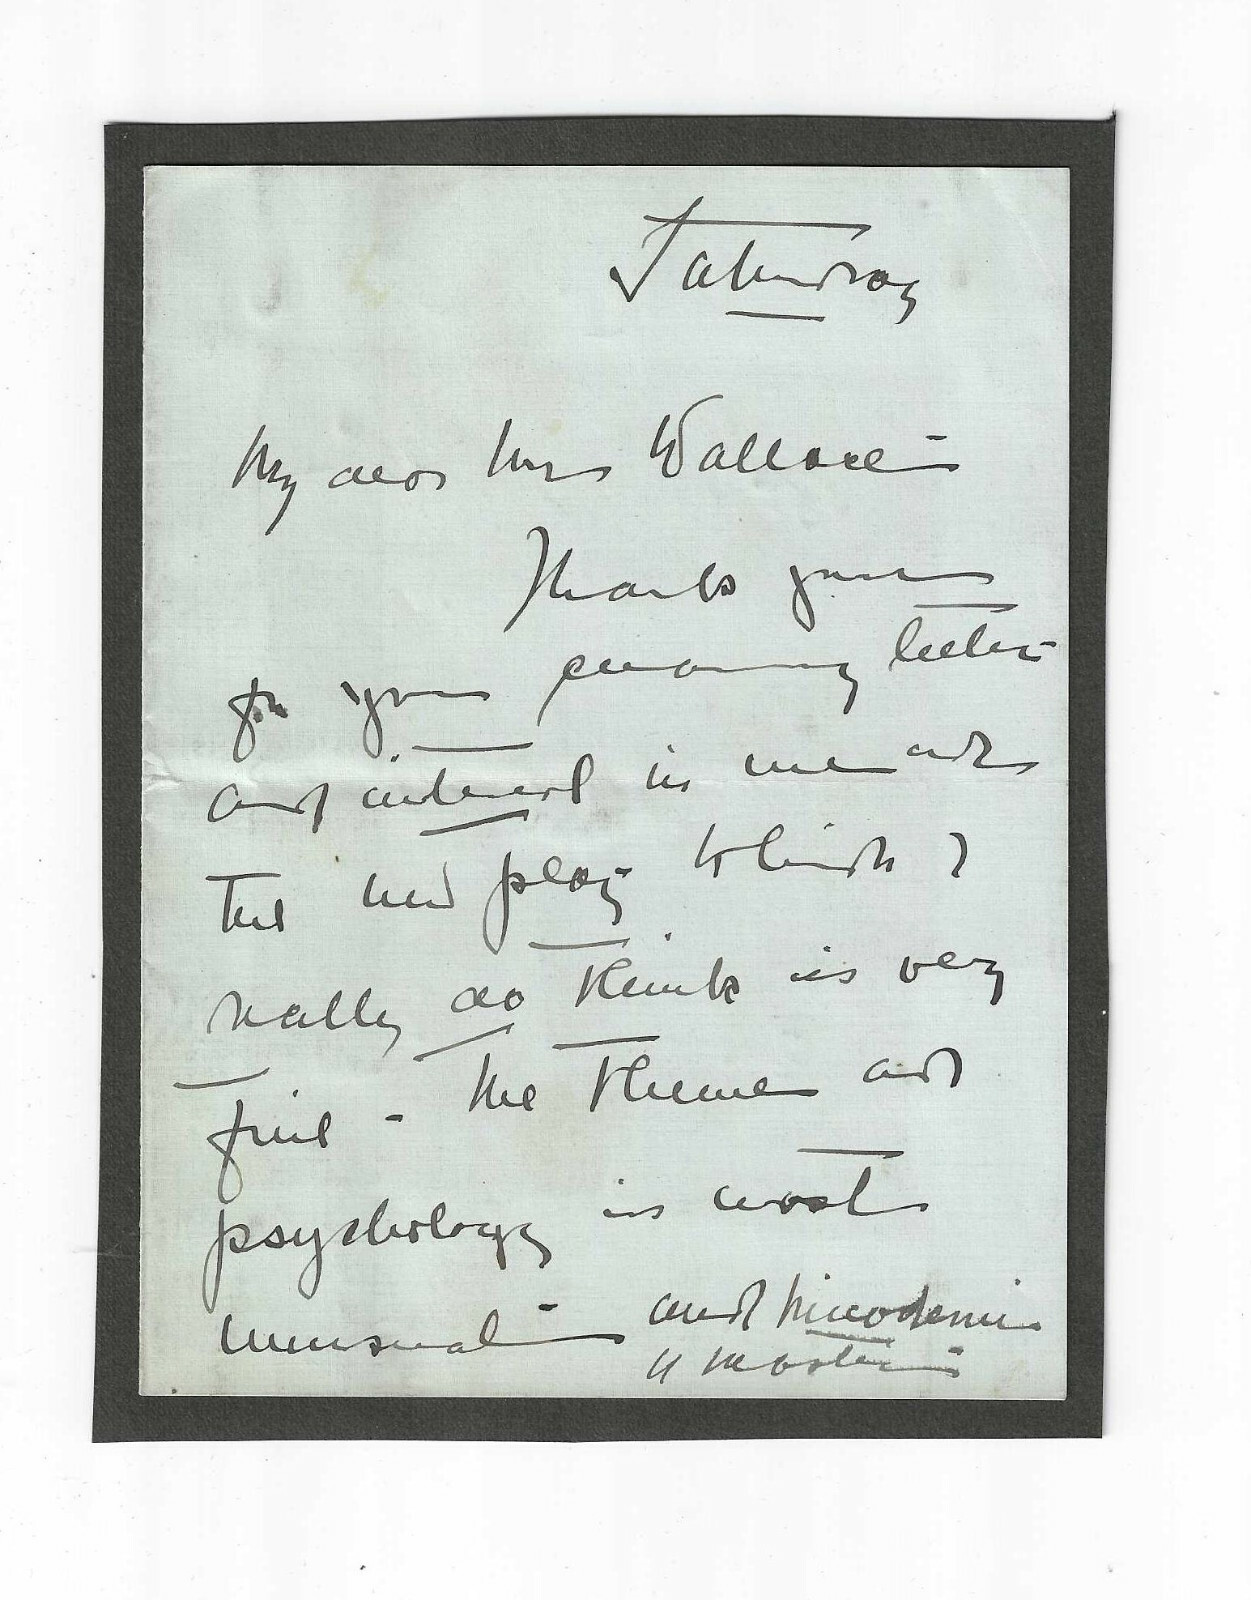 Saturday
My dear Mrs Wallace –
Thanks
for your charming letter –
and interest in me and
the new play – Which I
really do think is very
fine – The Theme and
psychology is most
unusual – and Niccodemi
a master –